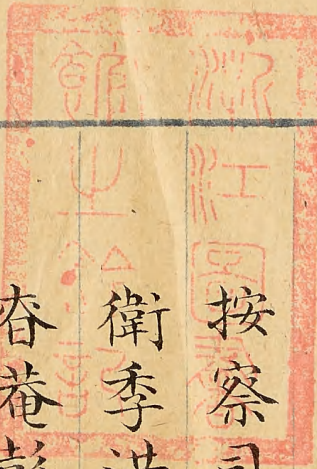 浙江圖書
館之
按察司
衛季
菴彭